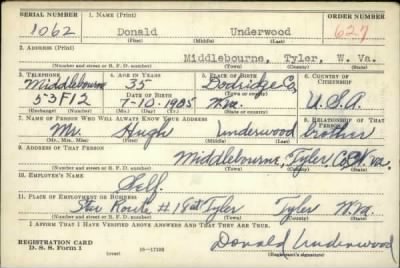 SERIAL NUMBER 1. NAME (Print) ORDER NUMBER
1062 Donald Underwood 627
(First) (Middle) (Last)
2. ADDRESS (Print)
Middlebourne, Tyler, W. Va.
(Number and street or R. F. D. number) (Town) (County) (State)
3. TELEPHONE 4. AGE IN YEARS 5. PLACE OF BIRTH 6. COUNTRY OF CITIZENSHIP
Middlebourne 35 Dodridge Co,
DATE OF BIRTH (Town or county)
53F12 7-10-1905 W.Va. U.S.A.
(Exchange) (Number) (Mo.) (Day) (Yr.) (State or country)
7. NAME OF PERSON WHO WILL ALWAYS KNOW YOUR ADDRESS 8. RELATIONSHIP OF THAT PERSON
Mr. Hugh Underwood brother
(Mr., Mrs., Miss) (First) (Middle) (Last)
9. ADDRESS OF THAT PERSON
Middlebourne, Tyler Co. W.Va.
(Number and street or R. F. D. number) (Town) (County) (State)
10. EMPLOYER'S NAME
Self.
11. PLACE OF EMPLOYMENT OR BUSINESS
Star Route #1 Tyler W.Va.
(Number and street or R. F. D. number) (Town) (County) (State)
I AFFIRM THAT I HAVE VERIFIED ABOVE ANSWERS AND THAT THEY ARE TRUE.
REGISTRATION CARD
D. S. S. Form 1 (over) 16-17105 Donald Underwood
(Registrant's signature)